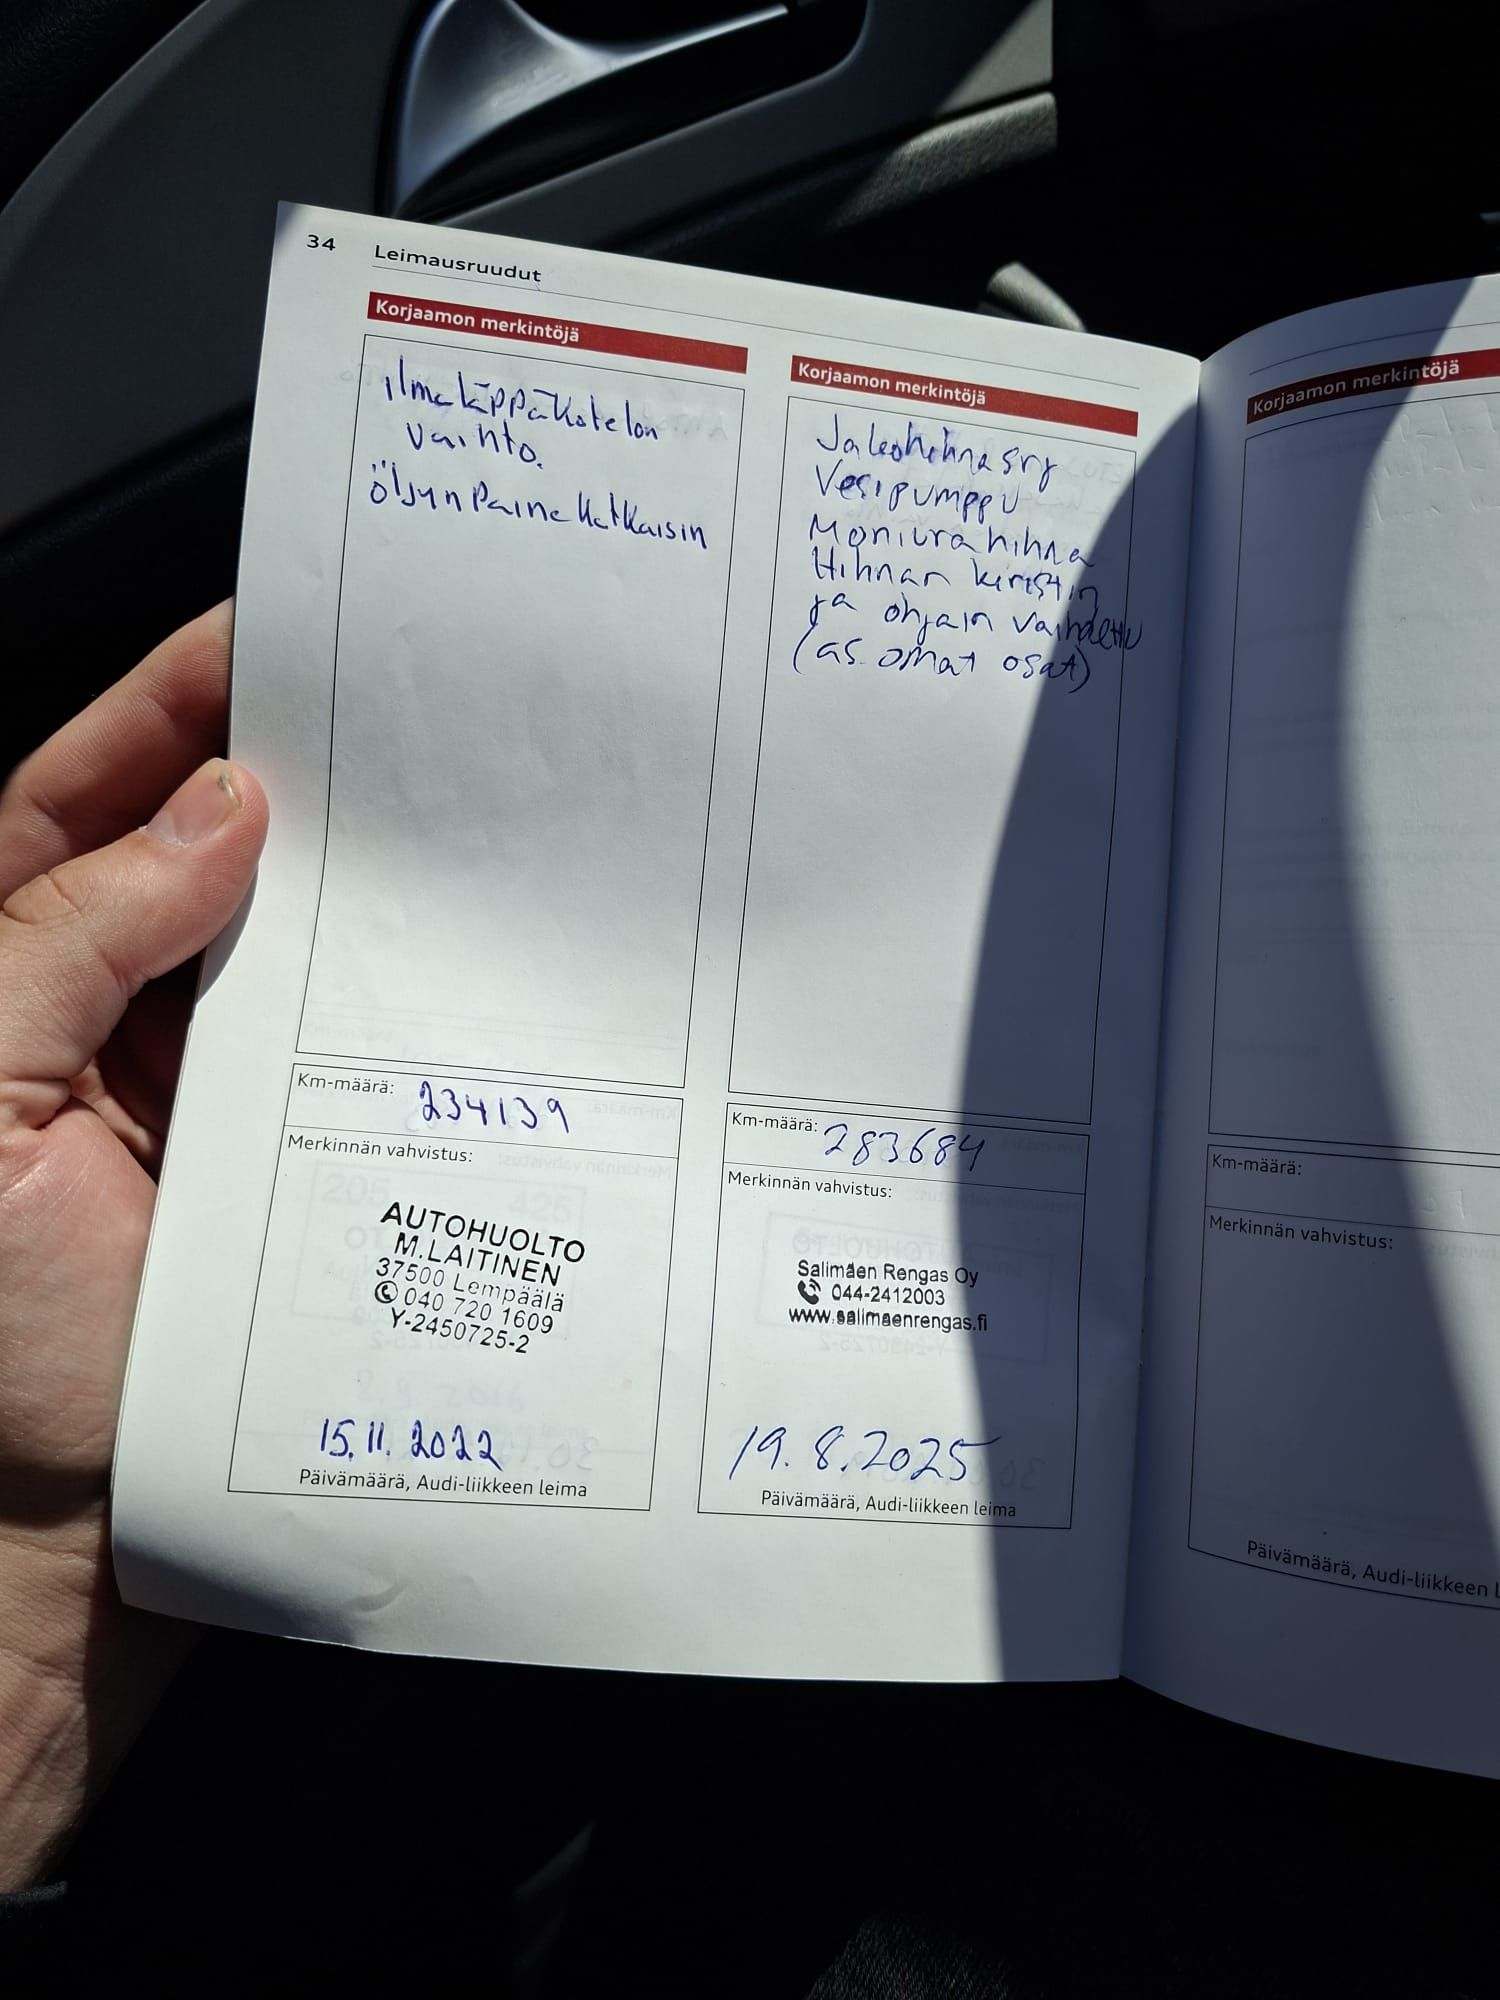 34 Leimausruudut
Korjaamon merkintöjä
Ilmaläppäkotelon
vaihto.
Öljynpainekatkaisin
Km-määrä: 234139
Merkinnän vahvistus:
AUTOHUOLTO
M.LAITINEN
37500 Lempäälä
040 720 1609
Y-2450725-2
15.11.2022
Päivämäärä, Audi-liikkeen leima
Korjaamon merkintöjä
Jakohihna srj
Vesipumppu
Moniurahihna
Hihnan kiristin
ja ohjain vaihdettu
(as. omat osat)
Km-määrä: 283684
Merkinnän vahvistus:
Salimäen Rengas Oy
044-2412003
www.salimaenrengas.fi
19.8.2025
Päivämäärä, Audi-liikkeen leima
Korjaamon merkintöjä
Km-määrä:
Merkinnän vahvistus:
Päivämäärä, Audi-liikkeen l